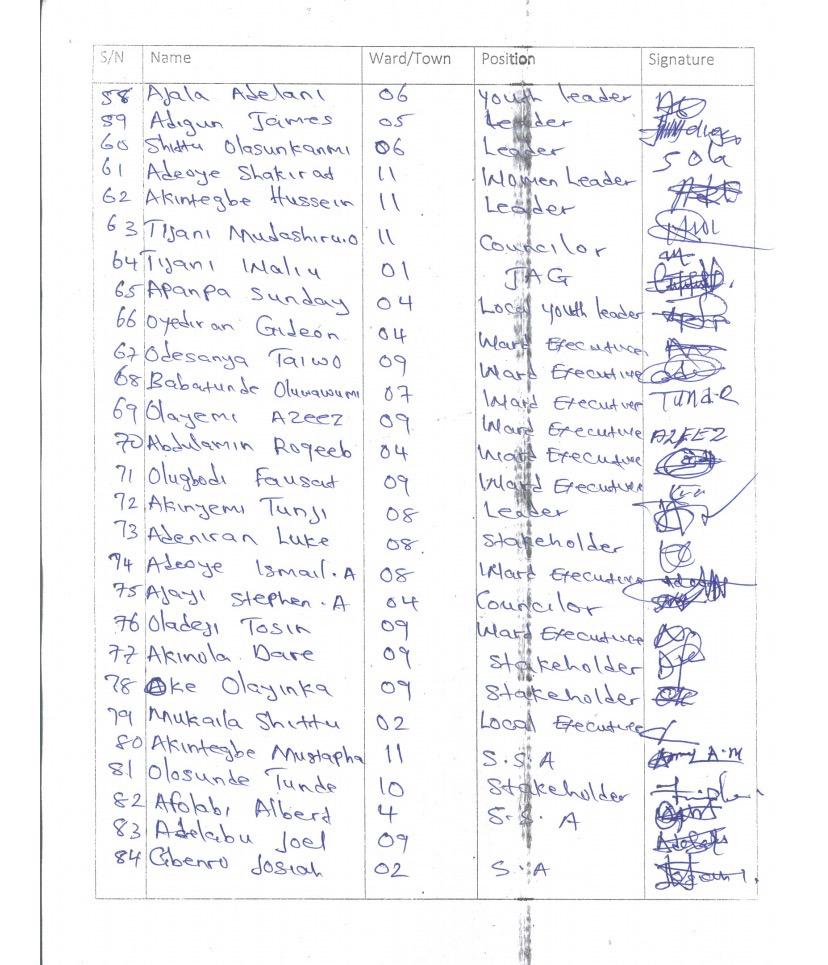 S/N Name Ward/Town Position Signature
58 Ajala Adelani 06 youth leader
59 Adigun James 05 Leader
60 Shittu Olasunkanmi 06 Leader SOLA
61 Adeoye Shakirat 11 Women Leader
62 Akintegbe Hussein 11 Leader
63 Tijani Mudashiru.O 11 Councilor
64 Tijani Waliu 01 JAG
65 Apanpa Sunday 04 Local youth leader
66 Oyediran Gideon 04 Ward Executives
67 Odesanya Taiwo 09 Ward Executive
68 Babatunde Oluwawumi 07 Ward Executives Tunde
69 Olayemi Azeez 09 Ward Executive AZEEZ
70 Abdulamin Roqeeb 04 Ward Executive
71 Olugbodi Fausat 09 Ward Executive
72 Akinyemi Tunji 08 Leader
73 Adeniran Luke 08 Stakeholder
74 Adeoye Ismail.A 08 Ward Executive
75 Ajayi Stephen.A 04 Councilor
76 Oladeji Tosin 09 Ward Executive
77 Akinola Dare 09 Stakeholder
78 Oke Olayinka 09 Stakeholder
79 Mukaila Shittu 02 Local Executive
80 Akintegbe Mustapha 11 S.S.A
81 Olosunde Tunde 10 Stakeholder
82 Afolabi Albert 4 S.S.A
83 Adelabu Joel 09
84 Gbenro Josiah 02 S.A